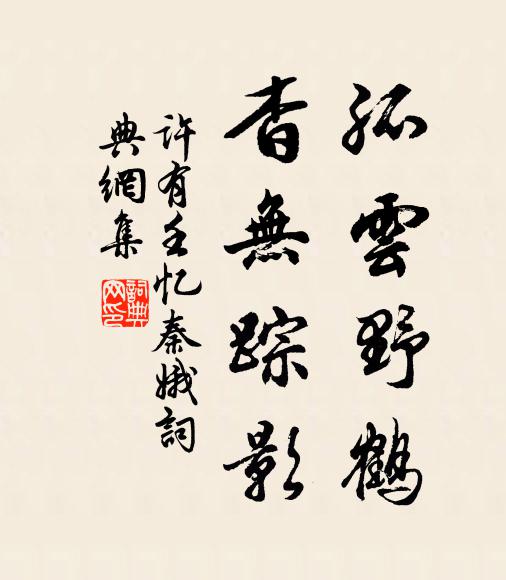 孤雲野鶴
杳無踪影
许有壬忆秦娥詞
典網集
詞典
网印